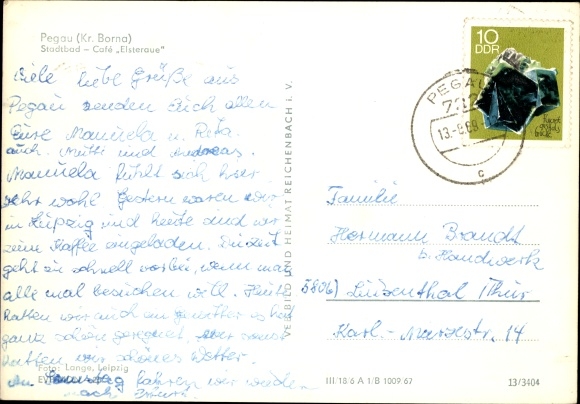 Pegau (Kr. Borna)
Stadtbad – Café „Elsteraue"
Viele liebe Grüße aus
Pegau senden Euch allen
Eure Manuela u. Rita.
auch Mutti und Andreas.
Manuela fühlt sich hier
sehr wohl. Gestern waren wir
in Leipzig und heute sind wir
zum Kaffee eingeladen. Die Zeit
geht so schnell vorbei, wenn man
alle mal besuchen will. Heute
hatten wir auch ein Gewitter es hat
ganz schön geregnet. Aber sonst
hatten wir schönes Wetter.
Foto: Lange, Leipzig
Am Sonntag fahren wir wieder
nach
VERLAG BILD UND HEIMAT REICHENBACH i. V.
10
DDR
PEGAU
c
Familie
Hermann Brandt
b. Handwerk
5806) Luisenthal (Thür
Karl-Marxstr. 14
III/18/6 A 1/B 1009/67
13/3404